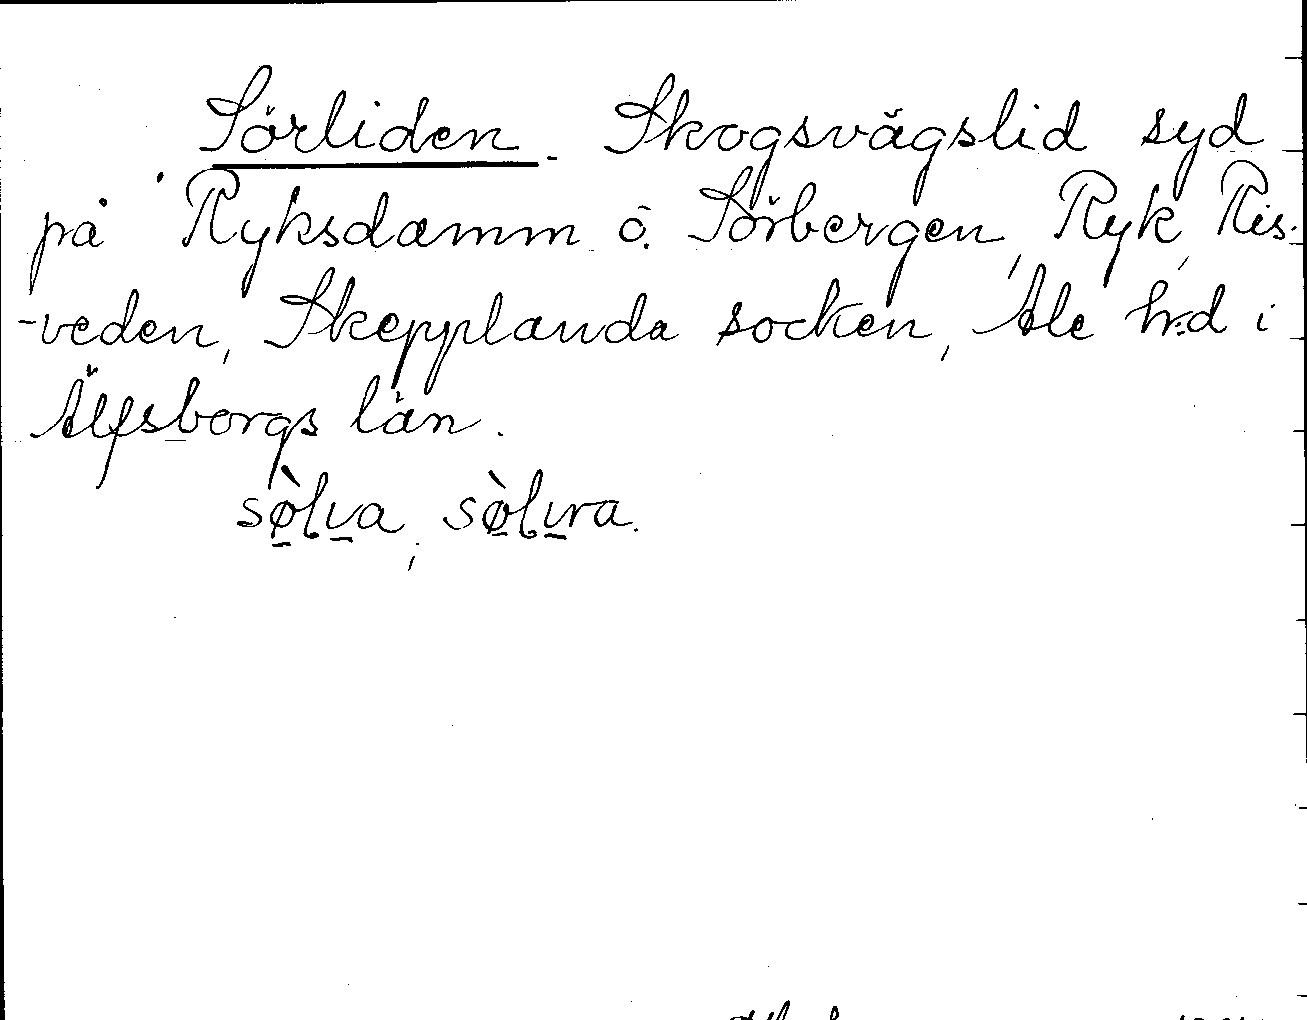 Sörliden. Skogsvägslid syd
på Ryksdamm ö. Sörbergen, Ryk, Ris-
-veden, Skepplanda socken, Ale h:d i
Älfsborgs län.